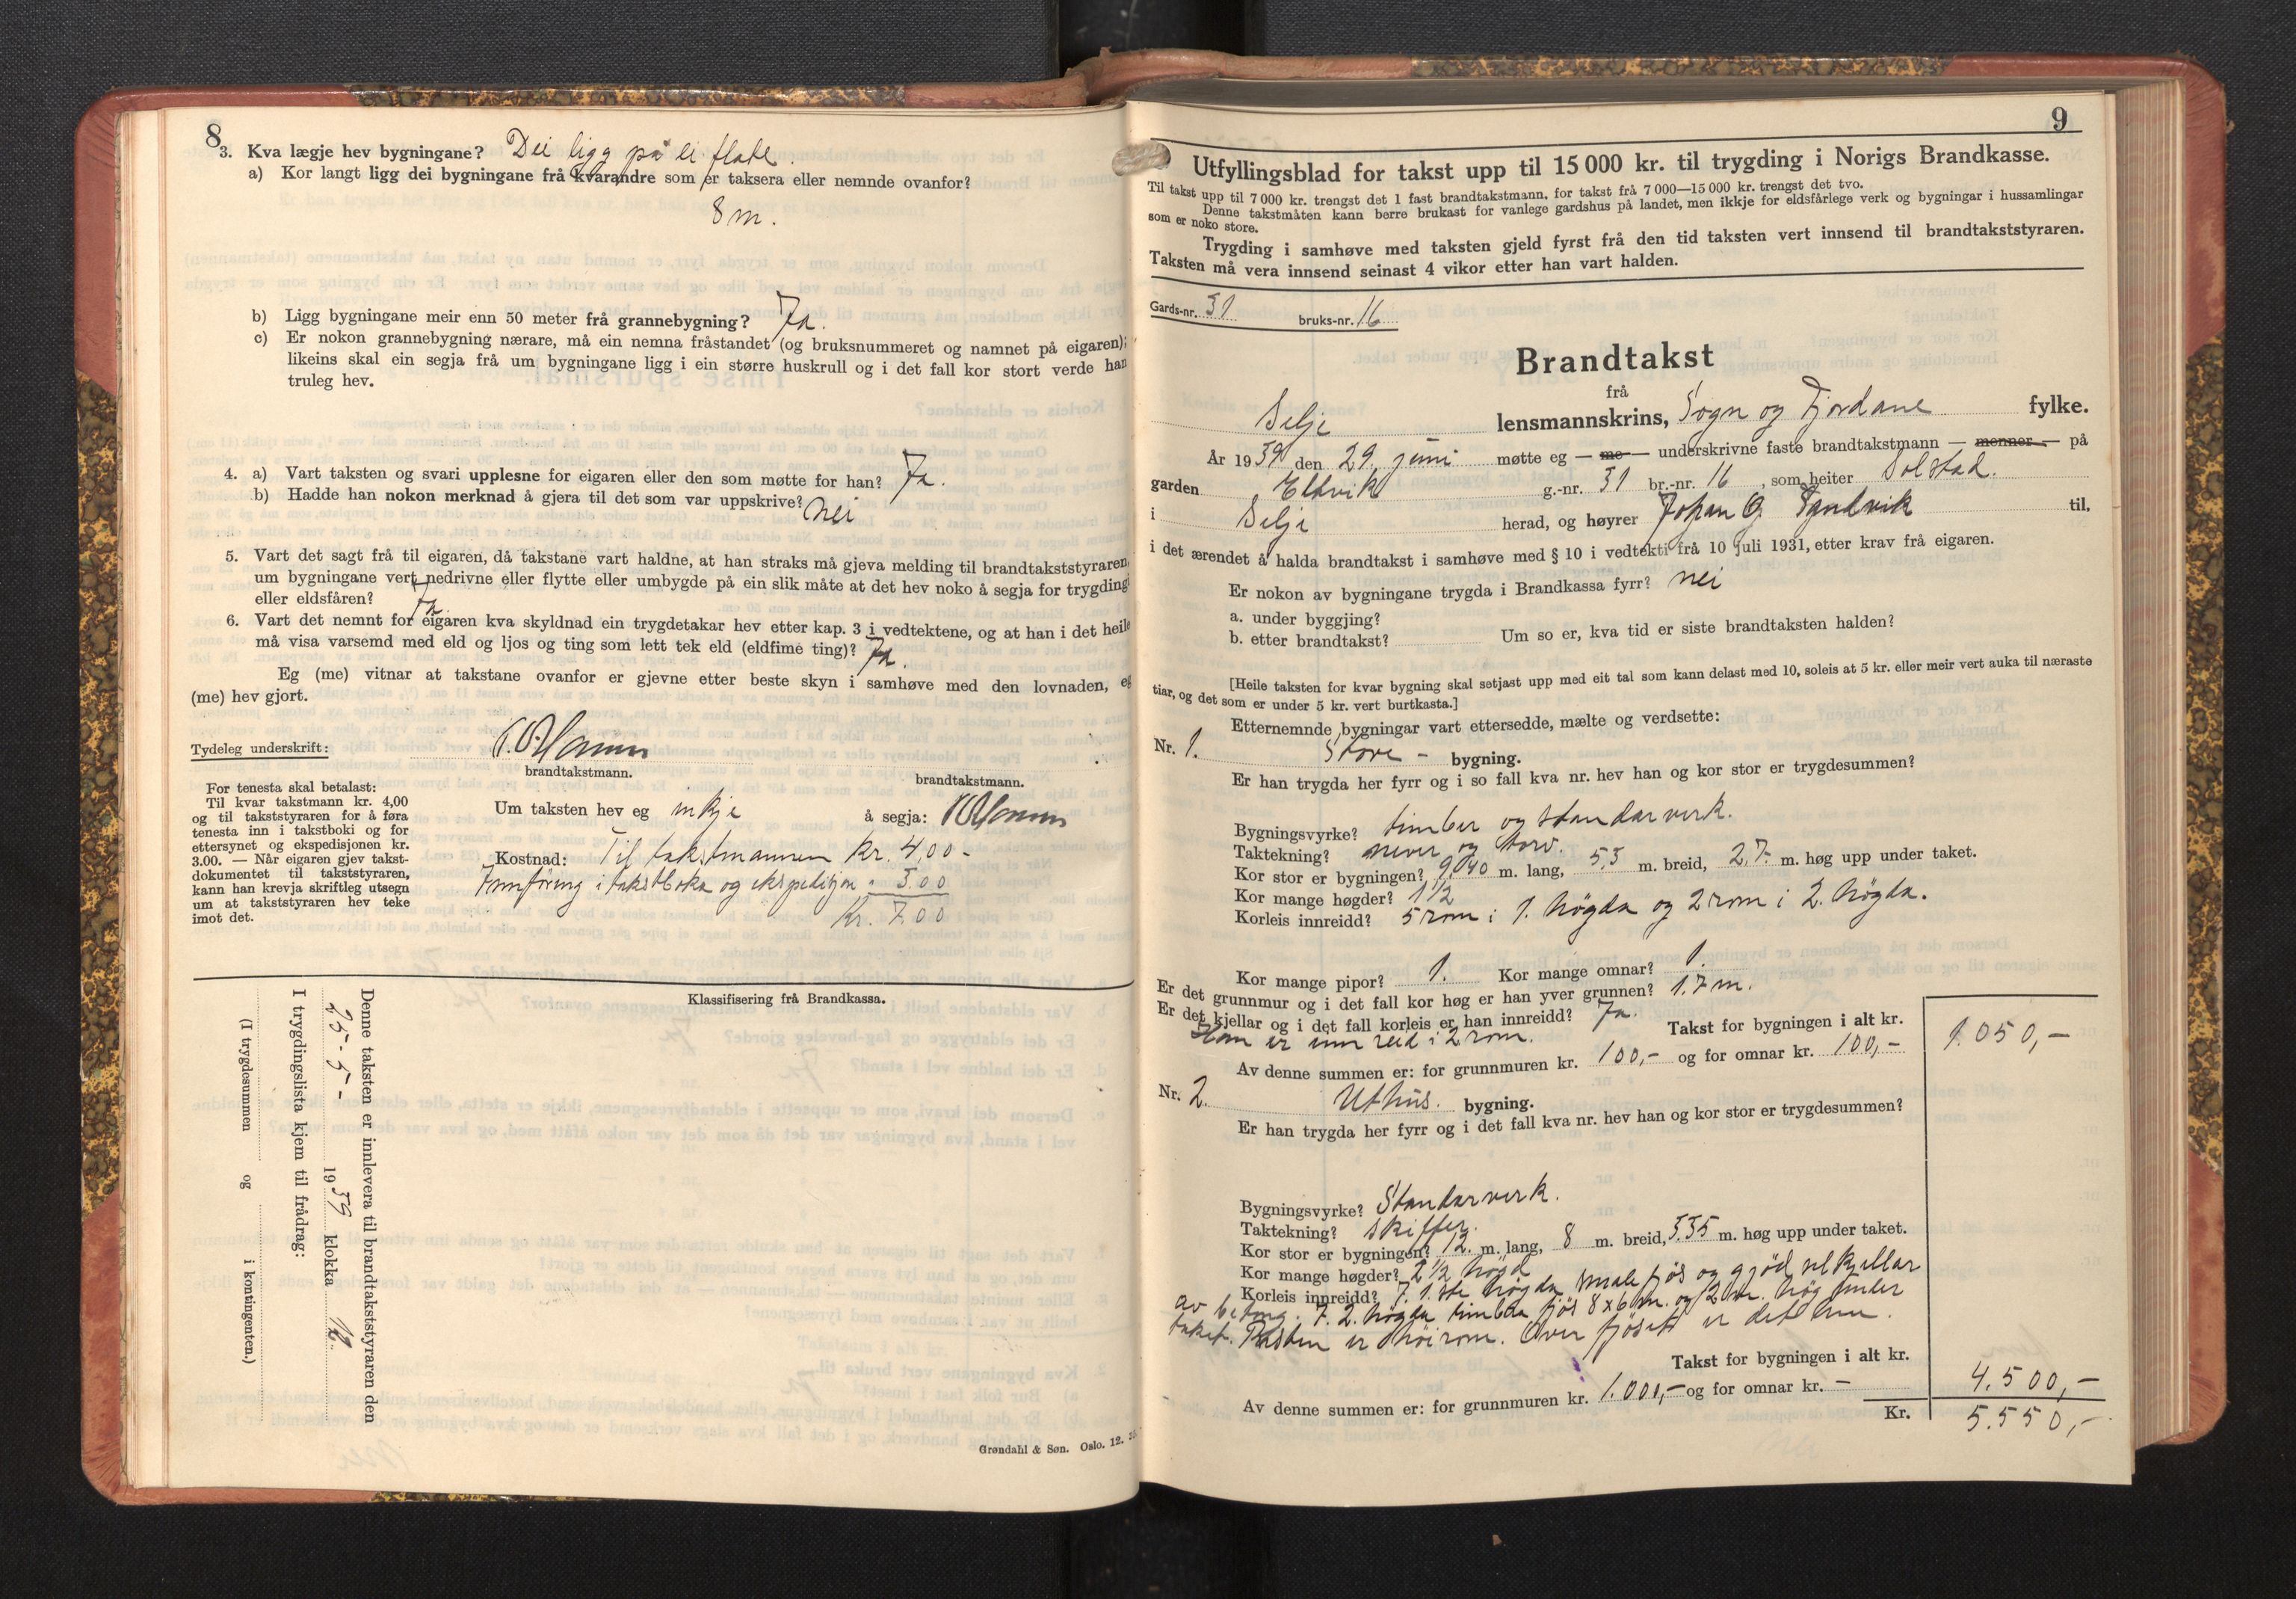 8
3. Kva lægje hev bygningane? Dei ligg på ei flate.
a) Kor langt ligg dei bygningane frå kvarandre som er taksera eller nemnde ovanfor?
8 m.
b) Ligg bygningane meir enn 50 meter frå grannebygning? Ja.
c) Er nokon grannebygning nærare, må ein nemna fråstandet (og bruksnummeret og namnet på eigaren);
likeins skal ein segja frå um bygningane ligg i ein større huskrull og i det fall kor stort verde han
truleg hev.
4. a) Vart taksten og svari upplesne for eigaren eller den som møtte for han? Ja.
b) Hadde han nokon merknad å gjera til det som var uppskrive? nei
5. Vart det sagt frå til eigaren, då takstane vart haldne, at han straks må gjeva melding til brandtakststyraren,
um bygningane vert nedrivne eller flytte eller umbygde på ein slik måte at det hev noko å segja for trygding
eller eldsfåren? Ja
6. Vart det nemnt for eigaren kva skyldnad ein trygdetakar hev etter kap. 3 i vedtektene, og at han i det heile
må visa varsemd med eld og ljos og ting som lett tek eld (eldfime ting)? Ja.
Eg (me) vitnar at takstane ovanfor er gjevne etter beste skyn i samhøve med den lovnaden, eg
(me) hev gjort.
Tydeleg underskrift:
brandtakstmann. brandtakstmann.
For tenesta skal betalast:
Til kvar takstmann kr. 4,00
og til takststyraren for å føra
tenesta inn i takstboki og for
ettersynet og ekspedisjonen kr.
3.00. — Når eigaren gjev takst-
dokumentet til takststyraren,
kann han krevja skriftleg utsegn
um at takststyraren hev teke
imot det.
Um taksten hev eg inkje å segja:
Kostnad: Til takstmannen Kr. 4,00 -
Innføring i takstboka og ekspedisjon " 3,00
Kr. 7,00
Klassifisering frå Brandkassa.
Denne taksten er innlevera til brandtakststyraren den
25-5- 1939 klokka 12.
I trygdingslista kjem til frådrag:
(I trygdesummen og i kontingenten.)
Grøndahl & Søn. Oslo. 12.
9
Utfyllingsblad for takst upp til 15 000 kr. til trygding i Norigs Brandkasse.
Til takst upp til 7 000 kr. trengst det 1 fast brandtakstmann, for takst frå 7 000—15 000 kr. trengst det tvo.
Denne takstmåten kann berre brukast for vanlege gardshus på landet, men ikkje for eldsfårlege verk og bygningar i hussamlingar
som er noko store.
Trygding i samhøve med taksten gjeld fyrst frå den tid taksten vert innsend til brandtakststyraren.
Taksten må vera innsend seinast 4 vikor etter han vart halden.
Gards-nr. 31 bruks-nr. 16
Brandtakst
frå
Selje lensmannskrins, Sogn og Fjordane fylke.
År 1939 den 29. juni møtte eg — me — underskrivne faste brandtakstmann — menner — på
garden Eltvik g.-nr. 31 br.-nr. 16, som heiter Solstad.
i Selje herad, og høyrer Johan G Sandvik til,
i det ærendet å halda brandtakst i samhøve med § 10 i vedtekti frå 10 juli 1931, etter krav frå eigaren.
Er nokon av bygningane trygda i Brandkassa fyrr? nei
a. under byggjing?
b. etter brandtakst? Um so er, kva tid er siste brandtaksten halden?
[Heile taksten for kvar bygning skal setjast upp med eit tal som kann delast med 10, soleis at 5 kr. eller meir vert auka til næraste
tiar, og det som er under 5 kr. vert burtkasta.]
Etternemnde bygningar vart ettersedde, mælte og verdsette:
Nr. 1. Stove - bygning.
Er han trygda her fyrr og i so fall kva nr. hev han og kor stor er trygdesummen?
Bygningsvyrke? timber og standarverk.
Taktekning? never og torv.
Kor stor er bygningen? 9,040 m. lang, 5,3 m. breid, 2,7 m. høg upp under taket.
Kor mange høgder? 1 1/2
Korleis innreidd? 5 rom i 1. høgda og 2 rom i 2. høgda.
Kor mange pipor? 1. Kor mange omnar? 1.
Er det grunnmur og i det fall kor høg er han yver grunnen? 1,7 m.
Er det kjellar og i det fall korleis er han innreidd? Ja. Takst for bygningen i alt kr. 1.050,-
Han er innreid i 2 rom.
Av denne summen er: for grunnmuren kr. 100,- og for omnar kr. 100,-
Nr. 2. Uthus. bygning.
Er han trygda her fyrr og i det fall kva nr. hev han og kor stor er trygdesummen?
Bygningsvyrke? Standarverk.
Taktekning? skiffer.
Kor stor er bygningen? 12. m. lang, 8 m. breid, 3.35 m. høg upp under taket.
Kor mange høgder? 2 1/2 høgd
Korleis innreidd? I 1.ste høgda smale fjøs og gjødselkjellar
av betong. I 2. høgda timbra fjøs 8x6 m. og 2 m. høg under
taket. Resten er høirom. Over fjøset er det
Takst for bygningen i alt kr. 4.500,-
Av denne summen er: for grunnmuren kr. 1.000,- og for omnar kr. —
Kr. 5.550,-